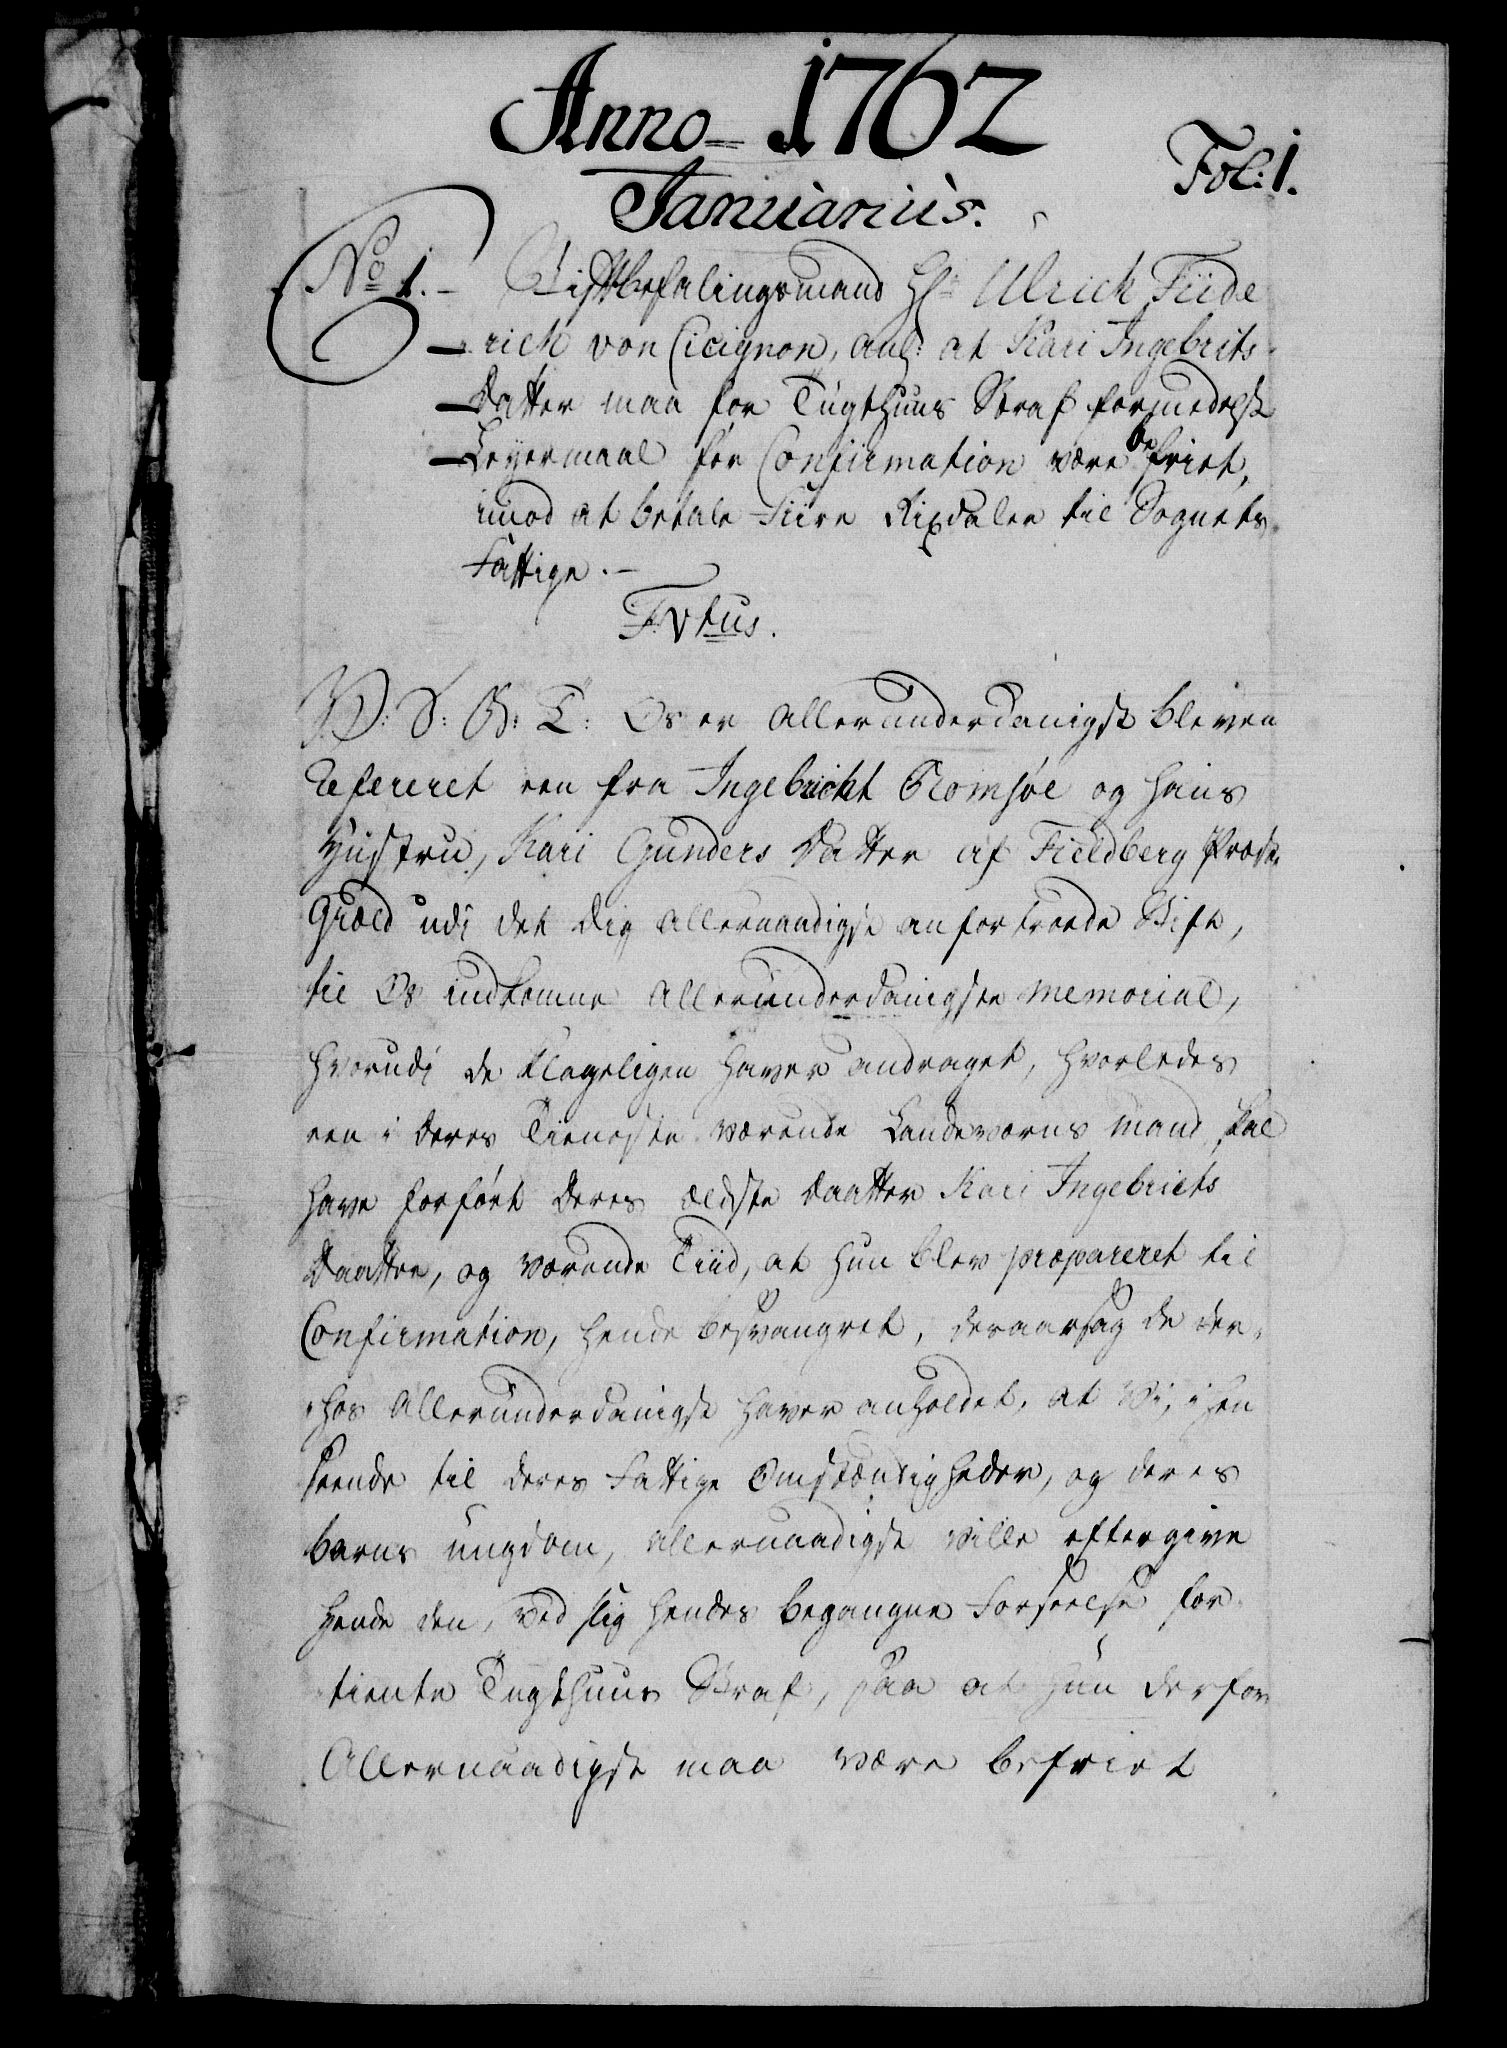 Anno 1762
Fol: 1.
Januarius.
No 1. Stiftbefalingsmand Hr Ulrich Fride
rich von Cicignon, anl: at Kari Ingebrits
Datter maa for Tugthuus Straf formedelst
Leyermaal før Confirmation være befriet,
imod at betale Fiire Rixdaler til Sognets
Fattige.
F. Vtus.
V: S: G: T: Os er allerunderdanigst bleven
Refereret een fra Ingebricht Romsøe og hans
Hustru, Kari Gunders Datter af Fieldberg Præste
Gield udi det dig allernaadigst anfortroede Stift,
til Os indkomne allerunderdanigste Memorial,
hvorudi de klageligen haver andraget, hvorledes
een i deres Tieneste værende Landeværns Mand skal
have forført deres ældste Daatter Kari Ingebrichts
Daatter, og værende Tiid, at hun blev præpareret til
Confirmation, hende besvangret, deraarsag de der-
hos allerunderdanigst haver anholdet, at Vi, i hen
seende til deres Fattige Omstændigheder, og deres
barns ungdom, allernaadigst ville eftergive
hende den, ved slig hendes begangne Forseelse for-
tiente Tugthuus Straf, saa at hun derfor
Allernaadigst maa være befriet